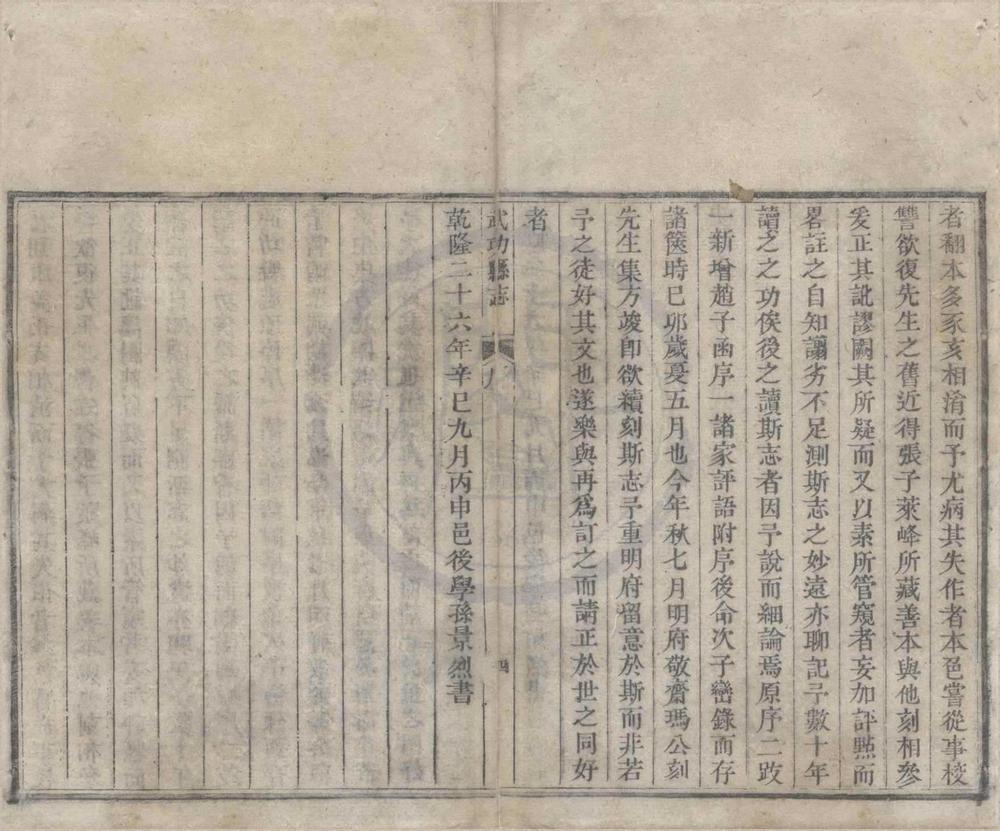 者翻本多豕亥相淆而予尤病其失作者本色嘗從事校
讐欲復先生之舊近得張子萊峰所藏善本與他刻相參
爰正其訛謬闕其所疑而又以素所管窺者妄加評㸃而
畧註之自知譾劣不足測斯志之妙遠亦聊記予數十年
讀之之功俟後之讀斯志者因予說而細論焉原序二跋
一新增趙子函序一諸家評語附序後命次子巒錄而存
諸篋時己卯歲夏五月也今年秋七月明府敬齋瑪公刻
先生集方竣卽欲續刻斯志予重明府留意於斯而非若
予之徒好其文也遂樂與再爲訂之而請正於世之同好
者
武功縣志 四
乾隆二十六年辛巳九月丙申邑後學孫景烈書